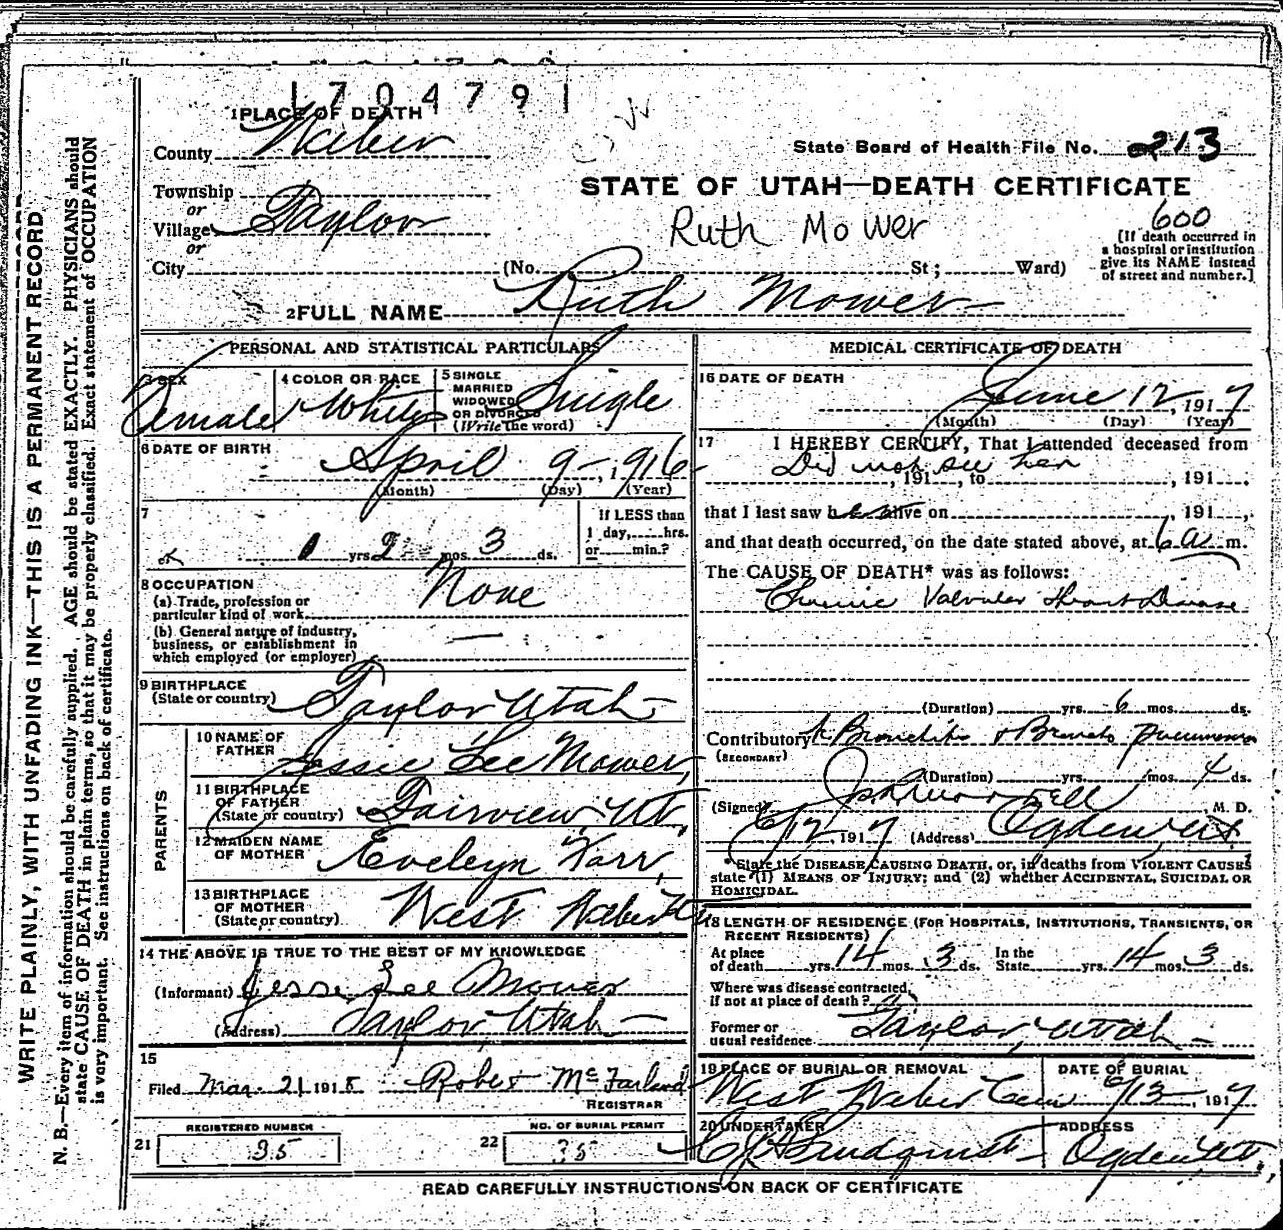 1704791
1 PLACE OF DEATH
County Weber
State Board of Health File No. 213
STATE OF UTAH—DEATH CERTIFICATE
Township
or
Village Taylor
or
Ruth Mower
600
[If death occurred in
a hospital or institution
give its NAME instead
of street and number.]
City (No. St; Ward)
2 FULL NAME Ruth Mower
PERSONAL AND STATISTICAL PARTICULARS
3 SEX Female
4 COLOR OR RACE White
5 SINGLE
MARRIED
WIDOWED
OR DIVORCED
(Write the word) Single
6 DATE OF BIRTH April 9-, 1916
(Month) (Day) (Year)
7
1 yrs 2 mos 3 ds.
If LESS than
1 day, hrs.
or min.?
8 OCCUPATION None
(a) Trade, profession or
particular kind of work
(b) General nature of industry,
business, or establishment in
which employed (or employer) —
9 BIRTHPLACE
(State or country) Taylor Utah
PARENTS
10 NAME OF
FATHER Jessie Lee Mower,
11 BIRTHPLACE
OF FATHER
(State or country) Fairview, Ut,
12 MAIDEN NAME
OF MOTHER Eveleyn Karr,
13 BIRTHPLACE
OF MOTHER
(State or country) West Weber Ut
14 THE ABOVE IS TRUE TO THE BEST OF MY KNOWLEDGE
(Informant) Jesse Lee Mower
(Address) Taylor, Utah
15
Filed Mar. 21 1918 Robert McFarland
REGISTRAR
REGISTERED NUMBER
21 35
NO. OF BURIAL PERMIT
22 35
MEDICAL CERTIFICATE OF DEATH
16 DATE OF DEATH June 12, 1917
(Month) (Day) (Year)
17 I HEREBY CERTIFY, That I attended deceased from
Did not see her
, 191 , to , 191 ,
that I last saw h alive on , 191 ,
and that death occurred, on the date stated above, at 6 a m.
The CAUSE OF DEATH* was as follows:
Chronic Valvular Heart Disease
(Duration) yrs. 6 mos. ds.
Contributory Bronchitis & Broncho pneumonia
(SECONDARY)
(Duration) yrs. mos. 4 ds.
(Signed) M. D.
6/12, 1917 (Address) Ogden Ut
*State the DISEASE CAUSING DEATH, or, in deaths from VIOLENT CAUSES
state (1) MEANS OF INJURY; and (2) whether ACCIDENTAL, SUICIDAL OR
HOMICIDAL.
18 LENGTH OF RESIDENCE (FOR HOSPITALS, INSTITUTIONS, TRANSIENTS, OR
RECENT RESIDENTS)
At place
of death yrs. 14 mos. 3 ds.
In the
State yrs. 14 mos. 3 ds.
Where was disease contracted,
if not at place of death?
Former or
usual residence Taylor, Utah -
19 PLACE OF BURIAL OR REMOVAL
West Weber Cem
DATE OF BURIAL
6/13, 1917
20 UNDERTAKER
Lindquist
ADDRESS
Ogden Ut,
READ CAREFULLY INSTRUCTIONS ON BACK OF CERTIFICATE
WRITE PLAINLY, WITH UNFADING INK—THIS IS A PERMANENT RECORD
N. B.—Every item of information should be carefully supplied. AGE should be stated EXACTLY. PHYSICIANS should
state CAUSE OF DEATH in plain terms, so that it may be properly classified. Exact statement of OCCUPATION
is very important. See instructions on back of certificate.